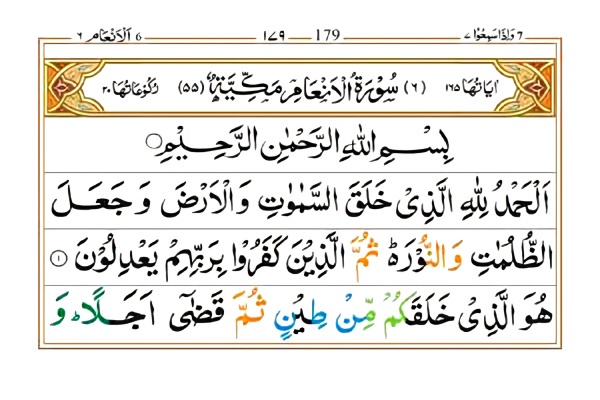 ٦ اَلْاَنْعَام 6 ١٧٩ 179 ٧ وَاِذَاسَمِعُوْا 7
اٰيَاتُهَا ١٦٥ (٦) سُوْرَةُ الْاَنْعَامِ مَكِّيَّةٌ (٥٥) رُكُوْعَاتُهَا ٢٠
بِسْمِ اللّٰهِ الرَّحْمٰنِ الرَّحِيْمِ
اَلْحَمْدُ لِلّٰهِ الَّذِىْ خَلَقَ السَّمٰوٰتِ وَالْاَرْضَ وَ جَعَلَ
الظُّلُمٰتِ وَالنُّوْرَ ؕ ثُمَّ الَّذِيْنَ كَفَرُوْا بِرَبِّهِمْ يَعْدِلُوْنَ ١
هُوَ الَّذِىْ خَلَقَكُمْ مِّنْ طِيْنٍ ثُمَّ قَضٰٓى اَجَلًا ؕ وَ